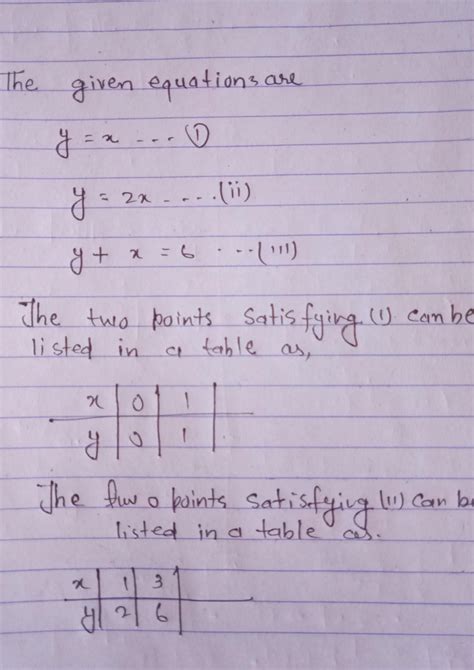 The given equations are
y = x --- (1)
y = 2x - ....(ii)
y + x = 6 ...(iii)
The two points satisfying (1) can be
listed in a table as,
x | 0 | 1 |
y | 0 | 1 |
The two points satisfying (ii) can be
listed in a table as.
x | 1 | 3 |
y | 2 | 6 |